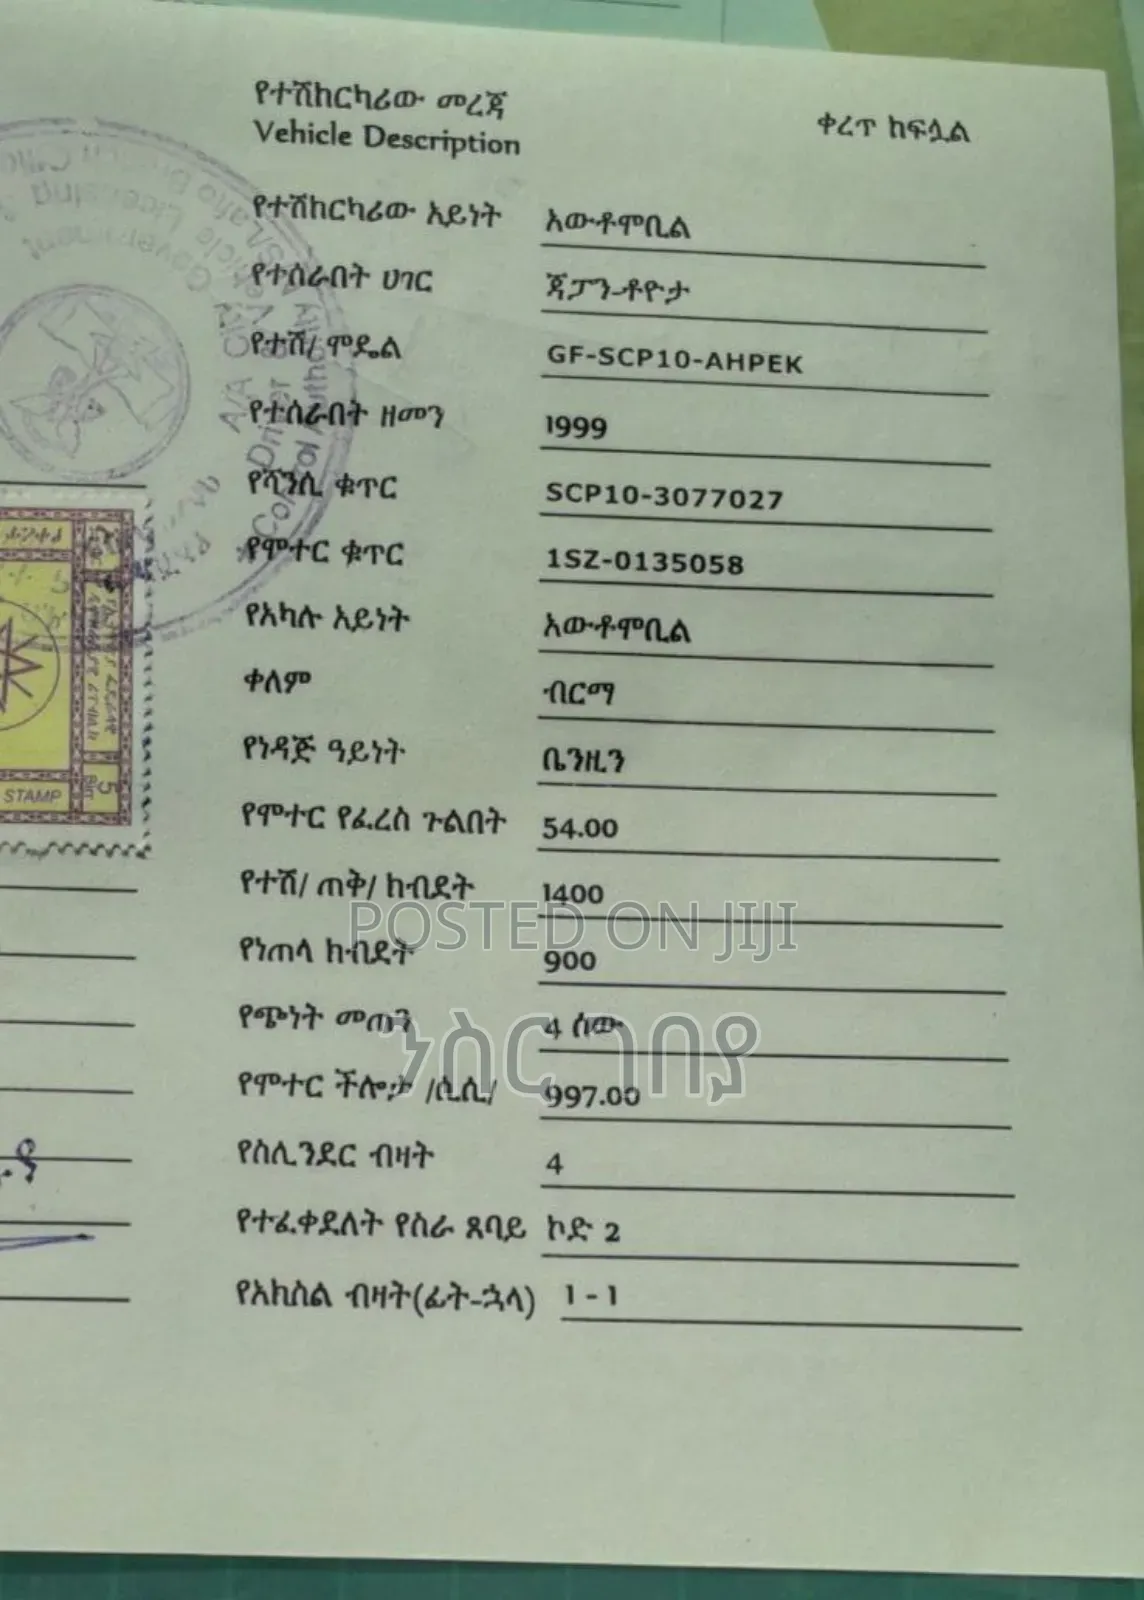 የተሽከርካሪው መረጃ
Vehicle Description
ቀረጥ ከፍሏል
የተሽከርካሪው አይነት አውቶሞቢል
የተሰራበት ሀገር ጃፓን-ቶዮታ
የተሽ/ ሞዴል GF-SCP10-AHPEK
የተሰራበት ዘመን 1999
የሻንሲ ቁጥር SCP10-3077027
የሞተር ቁጥር 1SZ-0135058
የአካሉ አይነት አውቶሞቢል
ቀለም ብርማ
የነዳጅ ዓይነት ቤንዚን
የሞተር የፈረስ ጉልበት 54.00
የተሽ/ ጠቅ/ ክብደት 1400
የነጠላ ክብደት 900
የጭነት መጠን 4 ሰው
የሞተር ችሎታ /ሲሲ/ 997.00
የስሊንደር ብዛት 4
የተፈቀደለት የስራ ጸባይ ኮድ 2
የአክስል ብዛት(ፊት-ኋላ) 1 - 1
STAMP
POSTED ON JIJI